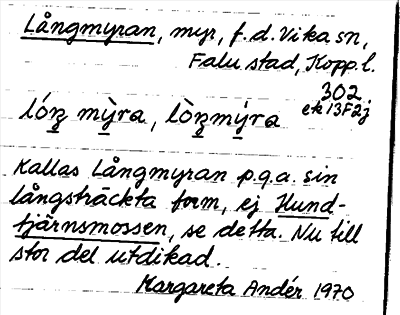 Långmyran, myr, f.d. Vika sn,
Falu stad, Kopp.l.
302
ek 13F2j
lóŋ mỳra, lòŋmýra
Kallas Långmyran p.g.a. sin
långsträckta form, ej Hund-
tjärnsmossen, se detta. Nu till
stor del utdikad.
Margareta Andér 1970